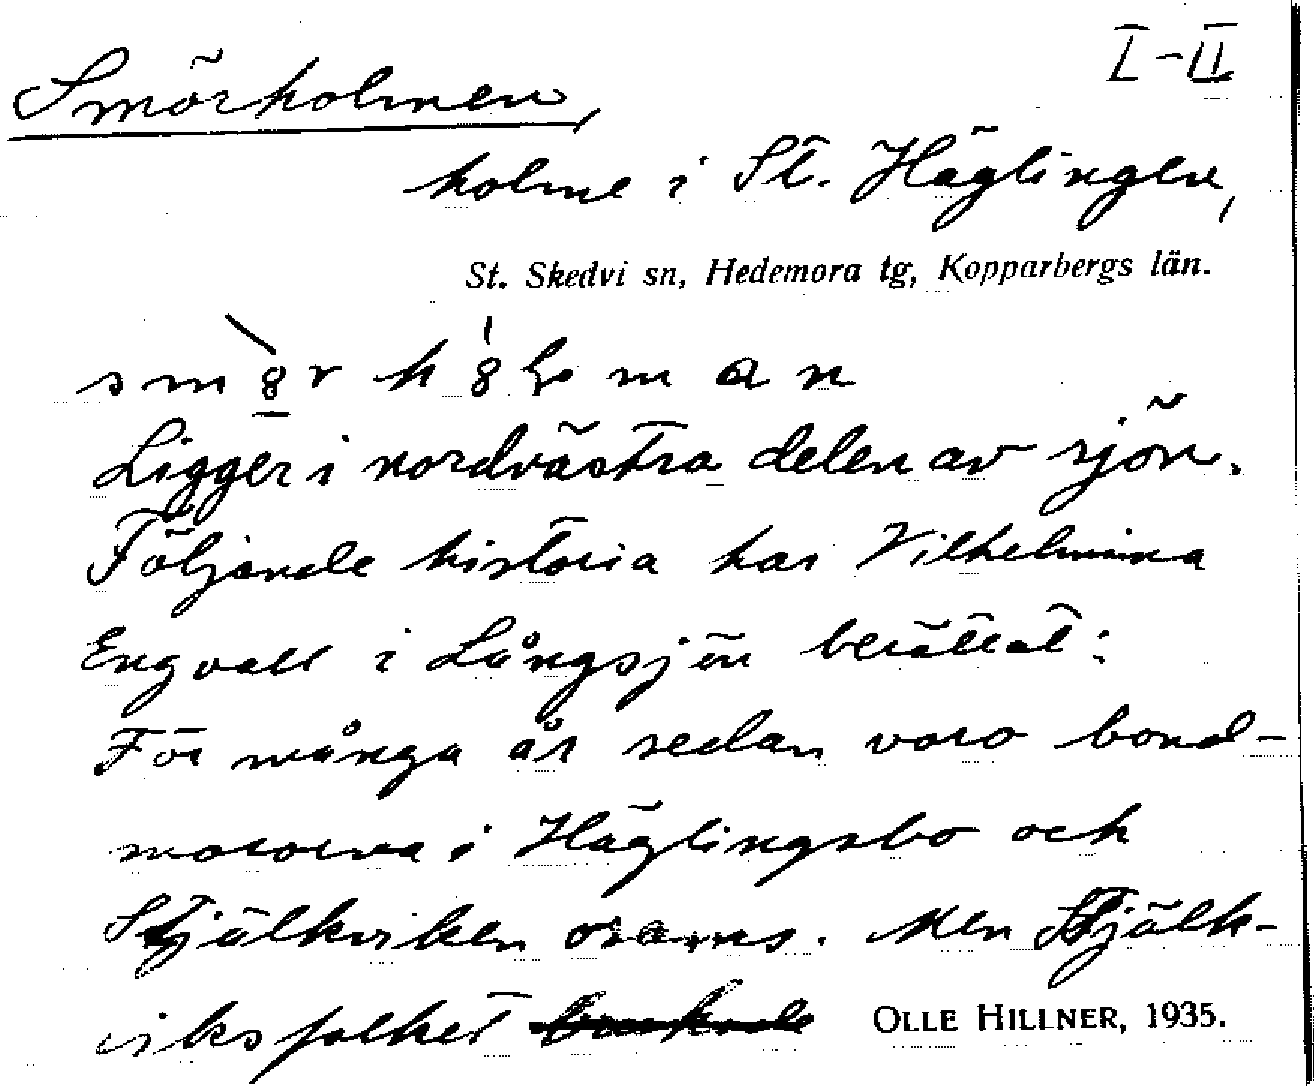 I-II
Smörholmen,
holme i St. Häglingen,
St. Skedvi sn, Hedemora tg, Kopparbergs län.
Ligger i nordvästra delen av sjön.
Följande historia har Vilhelmina
Engvall i Långsjön berättat:
För många år sedan voro bond-
mororna i Häglingsbo och
Stjälkviken osams. Men Stjälk-
viksfolket
OLLE HILLNER, 1935.